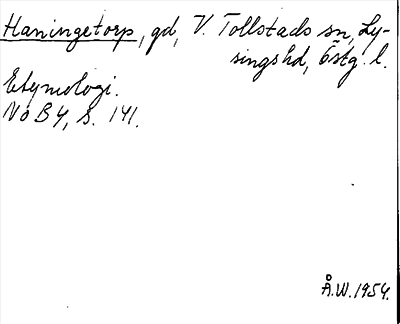 Haningetorp, gd, V. Tollstads sn, Ly-
singshd, Östg. l.
Etymologi.
NoB 4, s. 141.
Å.W. 1954.